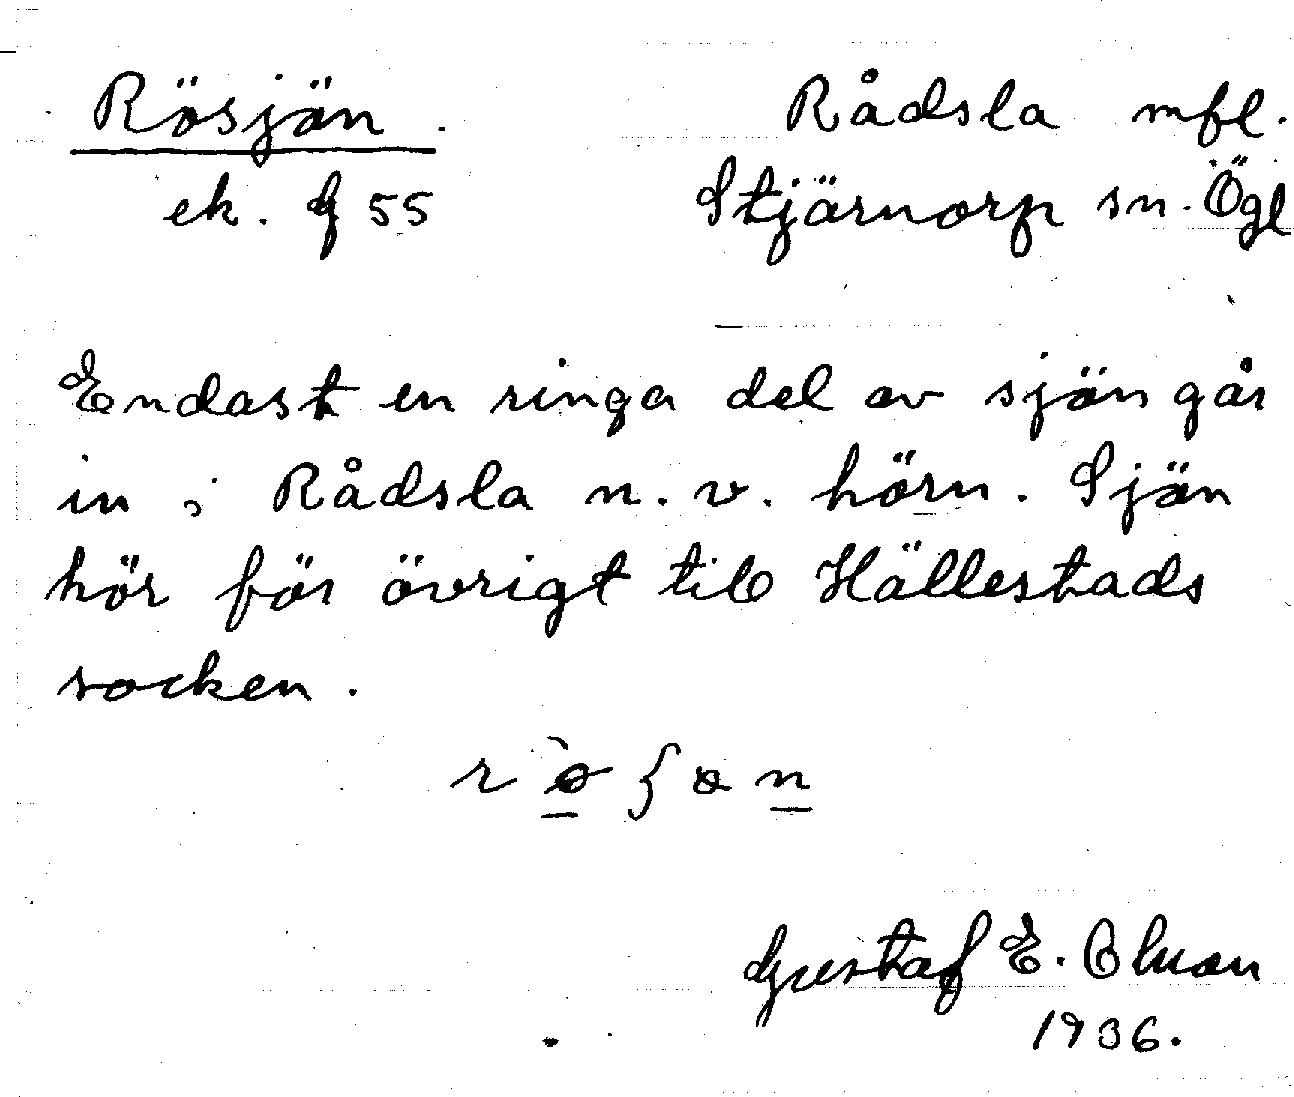 Rösjön.
Rådsla mfl.
ek. G 55
Stjärnorp sn. Ögl
Endast en ringa del av sjön går
in i Rådsla n.v. hörn. Sjön
hör för övrigt till Hällestads
socken.
Gustaf E.
1936.